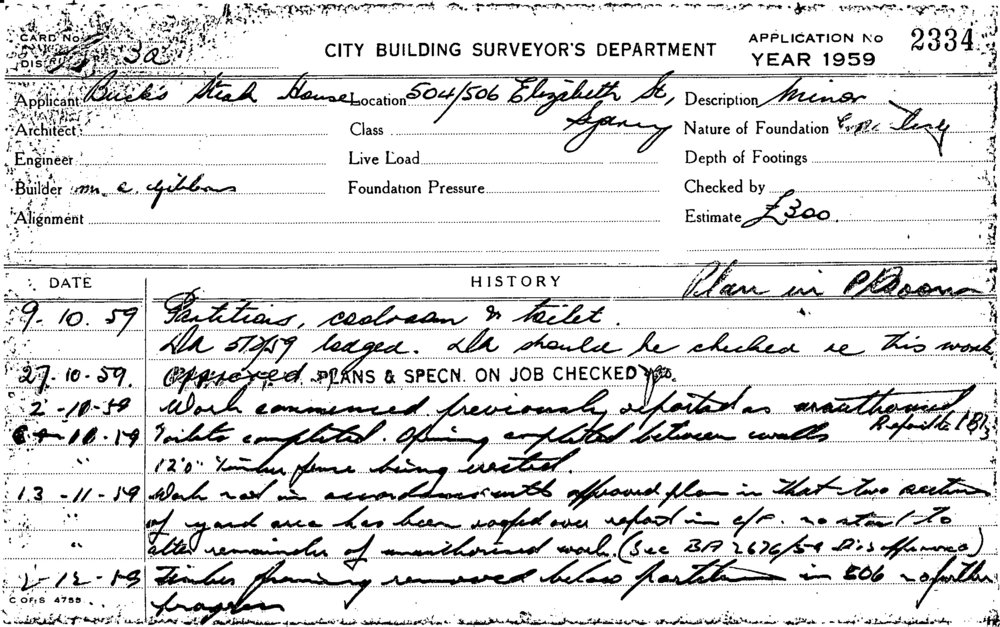 CARD No
DIS 32
CITY BUILDING SURVEYOR'S DEPARTMENT
APPLICATION No 2334
YEAR 1959
Applicant Buck's Steak House Location 504/506 Elizabeth St, Description Minor
Architect Class Sydney Nature of Foundation
Engineer Live Load Depth of Footings
Builder m. c. Gibbons Foundation Pressure Checked by
Alignment Estimate £300.
DATE HISTORY Plan in P. Room
9.10.59 Partitions, coolroom & toilet.
DA 59 lodged. DA should be checked re this work.
27.10.59. Approved. PLANS & SPECN. ON JOB CHECKED yes.
2-10-59 Work commenced previously reported as unauthorised
Toilets completed. Opening completed between walls
" 12'0" timber fence being erected.
13-11-59 Work not in accordance with approved plan in that two sections
" of yard area has been roofed over report in c/p. no start to
" alter remainder of unauthorised work. (See BA 2676/59 Disapproved)
2-12-59 Timber framing removed below partition in 506 no further
progress
C OF S 4755